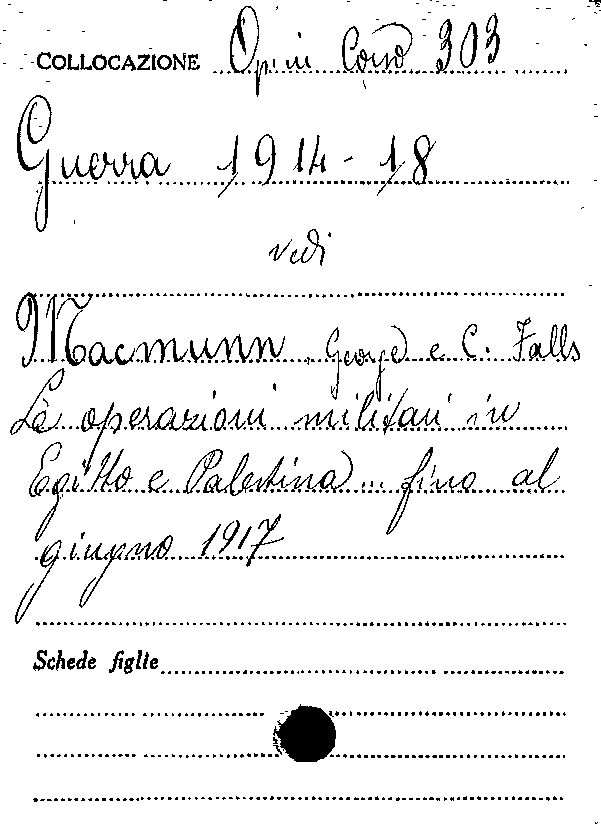 COLLOCAZIONE Opin Corso 303
Guerra 1914-18
vedi
Macmunn, George e C. Falls
Le operazioni militari in
Egitto e Palestina ... fino al
giugno 1917
Schede figlie